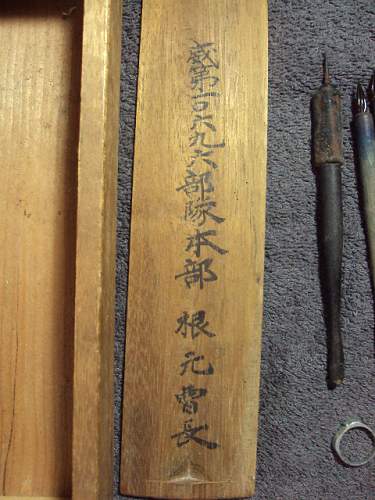 威第一〇六九六部隊本部 根元曹長